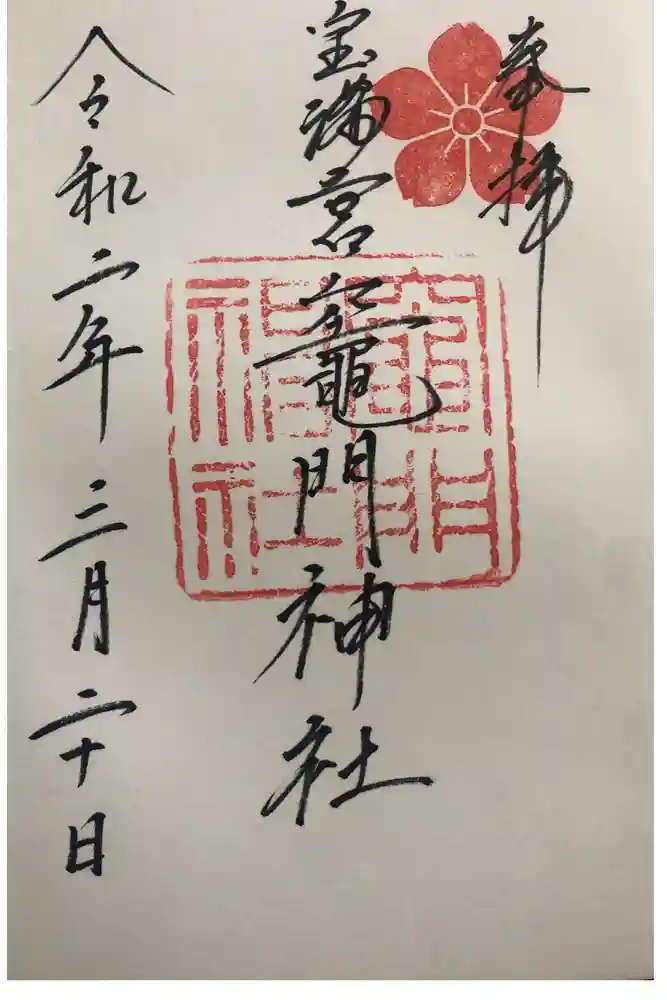 奉拝
宝満宮竈門神社
令和二年三月二十日
竈門
神社